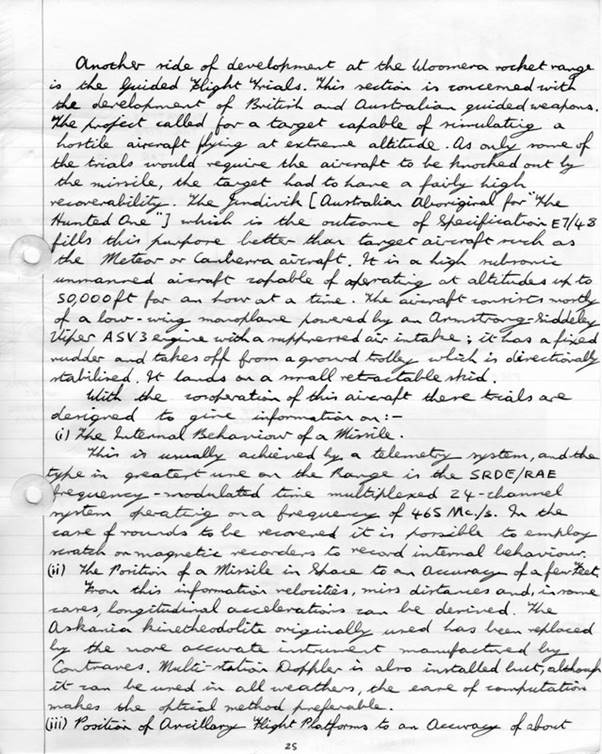 Another side of development at the Woomera rocket range
is the Guided Flight Trials. This section is concerned with
the development of British and Australian guided weapons.
The project called for a target capable of simulating a
hostile aircraft flying at extreme altitude. As only some of
the trials would require the aircraft to be knocked out by
the missile, the target had to have a fairly high
recoverability. The Jindivik [Australian Aboriginal for "The
Hunted One"] which is the outcome of Specification E7/48
fills this purpose better than target aircraft such as
the Meteor or Canberra aircraft. It is a high subsonic
unmanned aircraft capable of operating at altitudes up to
50,000 ft for an hour at a time. The aircraft consists mostly
of a low-wing monoplane powered by an Armstrong-Siddeley
Viper ASV3 engine with a suppressed air intake; it has a fixed
rudder and takes off from a ground trolley which is directionally
stabilised. It lands on a small retractable skid.
With the cooperation of this aircraft these trials are
designed to give information on:-
(i) The Internal Behaviour of a Missile.
This is usually achieved by a telemetry system, and the
type in greatest use on the Range is the SRDE/RAE
frequency-modulated time multiplexed 24-channel
system operating on a frequency of 465 Mc/s. In the
case of rounds to be recovered it is possible to employ
scratch or magnetic recorders to record internal behaviour.
(ii) The Position of a Missile in Space to an Accuracy of a few Feet.
From this information velocities, miss distances and, in some
cases, longitudinal accelerations can be derived. The
Askania kinetheodolite originally used has been replaced
by the more accurate instrument manufactured by
Contraves. Multi-station Doppler is also installed but, although
it can be used in all weathers, the ease of computation
makes the optical method preferable.
(iii) Position of Ancillary Flight Platforms to an Accuracy of about
25